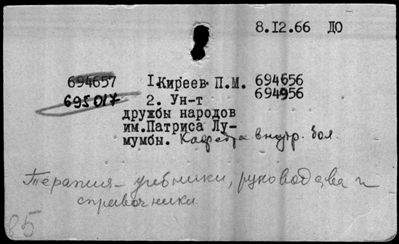 8.12.66 ДО
694657 1.Киреев П.М. 694656
695017 2. Ун-т 694956
дружбы народов
им.Патриса Лу-
мумбы. Кафедра внутр. бол.
Терапия – учебники, руководства и
справочники
85